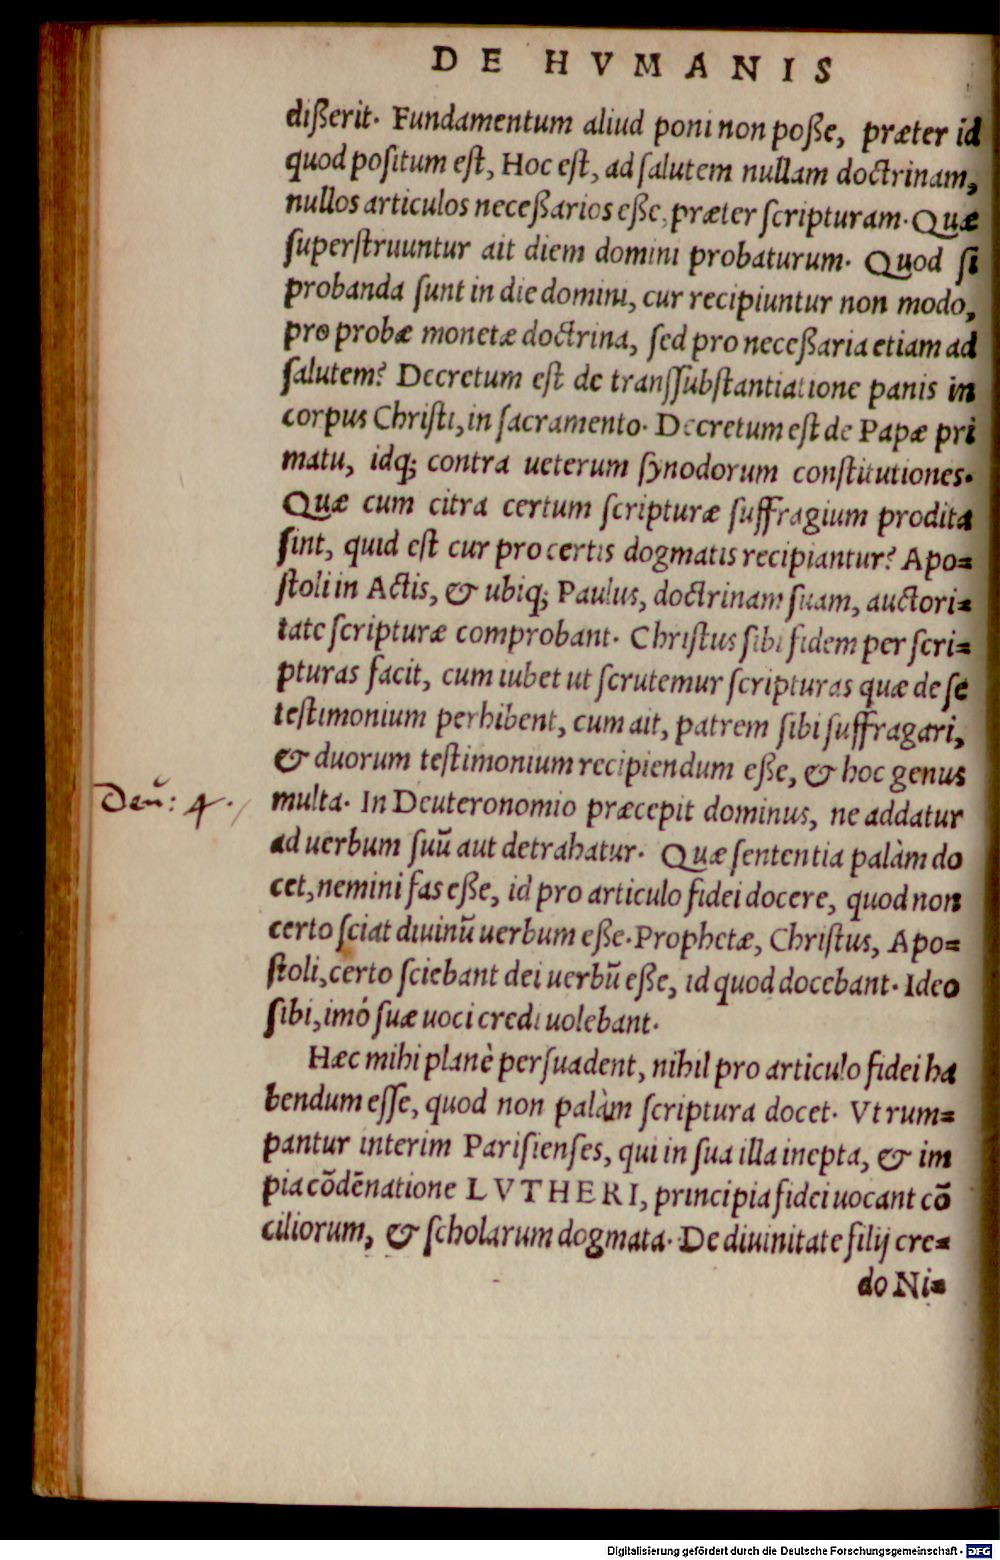 DE HVMANIS
dißerit. Fundamentum aliud poni non poße, præter id
quod positum est, Hoc est, ad salutem nullam doctrinam,
nullos articulos neceßarios eße, præter scripturam. Quæ
superstruuntur ait diem domini probaturum. Quod si
probanda sunt in die domini, cur recipiuntur non modo,
pro probæ monetæ doctrina, sed pro neceßaria etiam ad
salutem? Decretum est de transsubstantiatione panis in
corpus Christi, in sacramento. Decretum est de Papæ pri
matu, idq; contra ueterum synodorum constitutiones.
Quæ cum citra certum scripturæ suffragium prodita
sint, quid est cur pro certis dogmatis recipiantur? Apo=
stoli in Actis, & ubiq; Paulus, doctrinam suam, auctori=
tate scripturæ comprobant. Christus sibi fidem per scri=
pturas facit, cum iubet ut scrutemur scripturas quæ de se
testimonium perhibent, cum ait, patrem sibi suffragari,
& duorum testimonium recipiendum eße, & hoc genus
Deũ: 4.
multa. In Deuteronomio præcepit dominus, ne addatur
ad uerbum suũ aut detrahatur. Quæ sententia palàm do
cet, nemini fas eße, id pro articulo fidei docere, quod non
certo sciat diuinũ uerbum eße. Prophetæ, Christus, Apo=
stoli, certo sciebant dei uerbũ eße, id quod docebant. Ideo
sibi, imó suæ uoci credi uolebant.
Hæc mihi planè persuadent, nihil pro articulo fidei ha
bendum esse, quod non palàm scriptura docet. Vt rum=
pantur interim Parisienses, qui in sua illa inepta, & im
pia cõdẽnatione LVTHERI, principia fidei uocant cõ
ciliorum, & scholarum dogmata. De diuinitate filij cre=
do Ni=
Digitalisierung gefördert durch die Deutsche Forschungsgemeinschaft - DFG